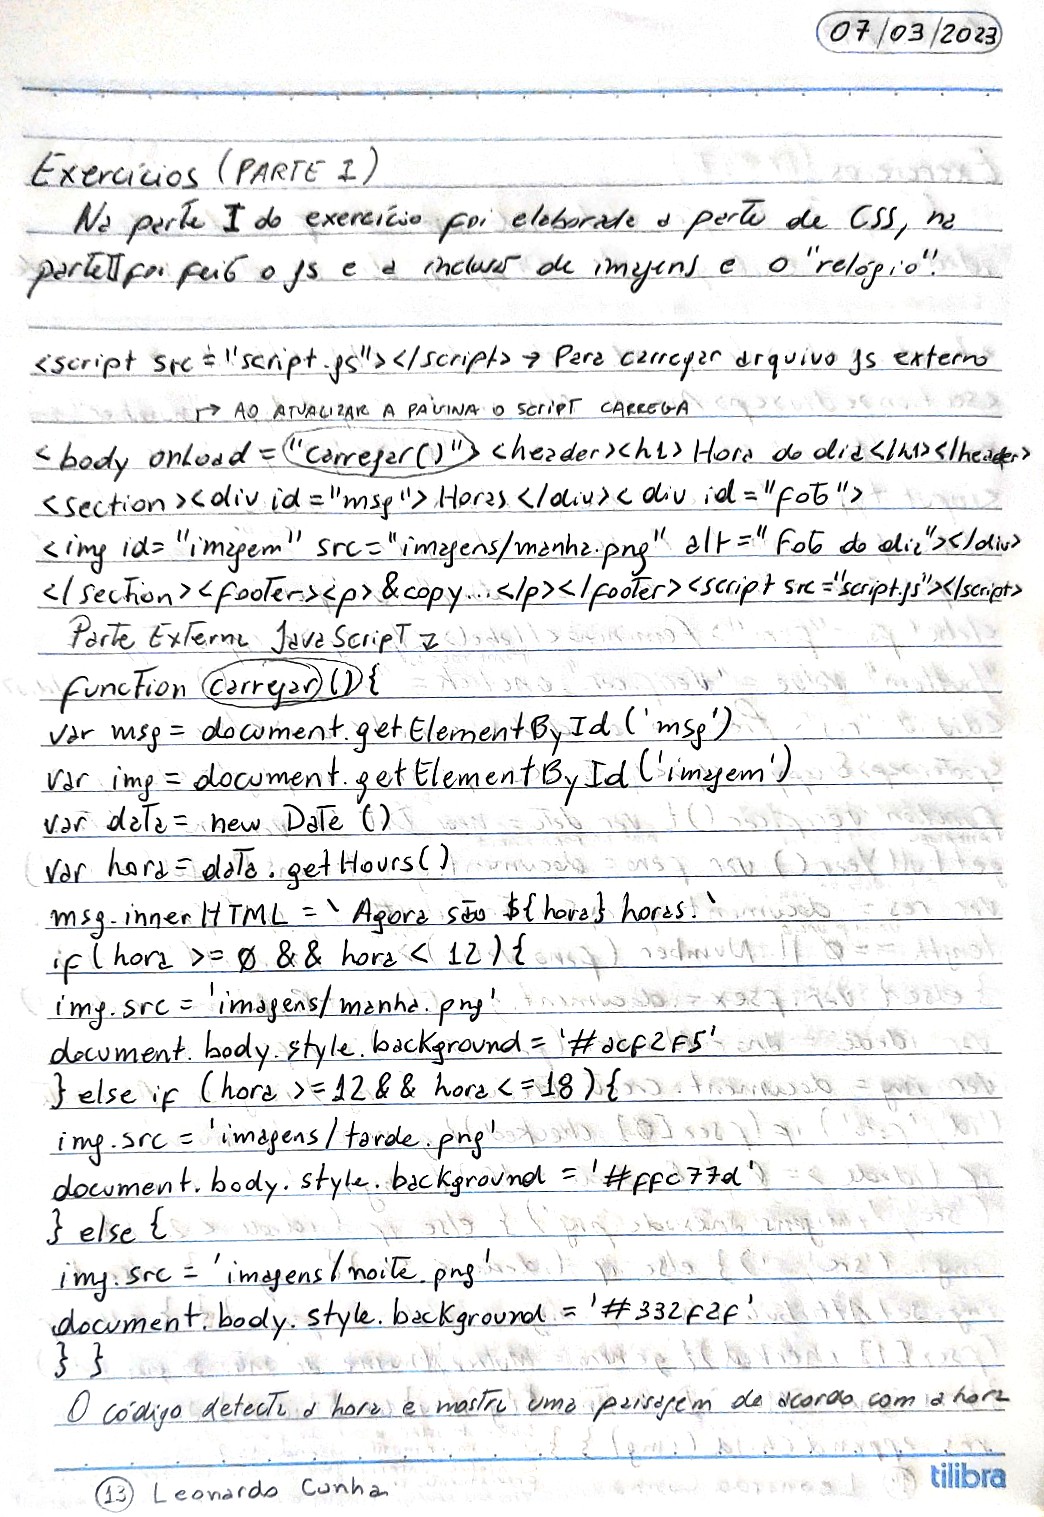 07/03/2023
Exercícios (PARTE I)
Na parte I do exercício foi elaborada a parte de CSS, na
parte II foi feito o js e a inclusão de imagens e o "relógio".
<script src="script.js"></script> → Para carregar arquivo js externo
↱ AO ATUALIZAR A PÁGINA O SCRIPT CARREGA
<body onload="carregar()"> <header><h1> Hora do dia </h1></header>
<section><div id="msg"> Horas </div><div id="foto">
<img id="imagem" src="imagens/manha.png" alt="Foto do dia"></div>
</section><footer><p> &copy... </p></footer><script src="script.js"></script>
Parte Externa JavaScript ↓
function carregar(){
var msg = document.getElementById('msg')
var img = document.getElementById('imagem')
var data = new Date()
var hora = data.getHours()
msg.innerHTML = `Agora são ${hora} horas.`
if(hora >= 0 && hora < 12){
img.src = 'imagens/manha.png'
document.body.style.background = '#acf2f5'
} else if (hora >= 12 && hora <= 18){
img.src = 'imagens/tarde.png'
document.body.style.background = '#ffc77d'
} else {
img.src = 'imagens/noite.png'
document.body.style.background = '#332f2f'
} }
O código detecta a hora e mostra uma paisagem de acordo com a hora
tilibra
13 Leonardo Cunha